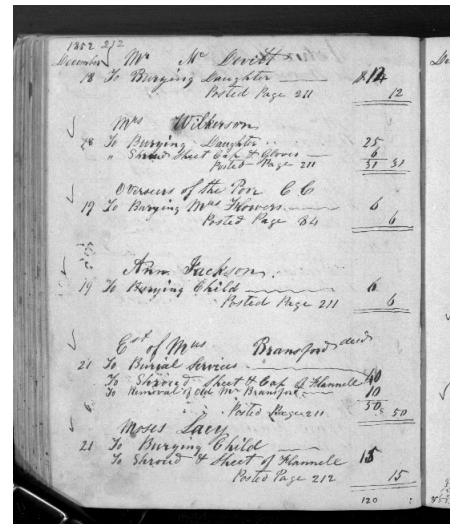 1852 212
December Mr McDevitt
18 To Burying Daughter $12
Posted Page 211 12
Mrs Wilkerson
18 To Burying Daughter 25
" Shroud Sheet Cap & Gloves 6
Posted Page 211 31 31
Overseers of the Poor C C
19 To Burying Mrs Flowers 6
Posted Page 84 6
Ann Jackson.
19 To Burying Child 6
Posted Page 211 6
Est of Mrs Bransford decd
21 To Burial Services
To Shroud Sheet & Cap of Flannell 40
To Removal of old Mr Bransford 10
Posted Page 211 50 50
Moses Lacy
21 To Burying Child
To Shroud & Sheet of Flannell 15
Posted Page 212 15
120